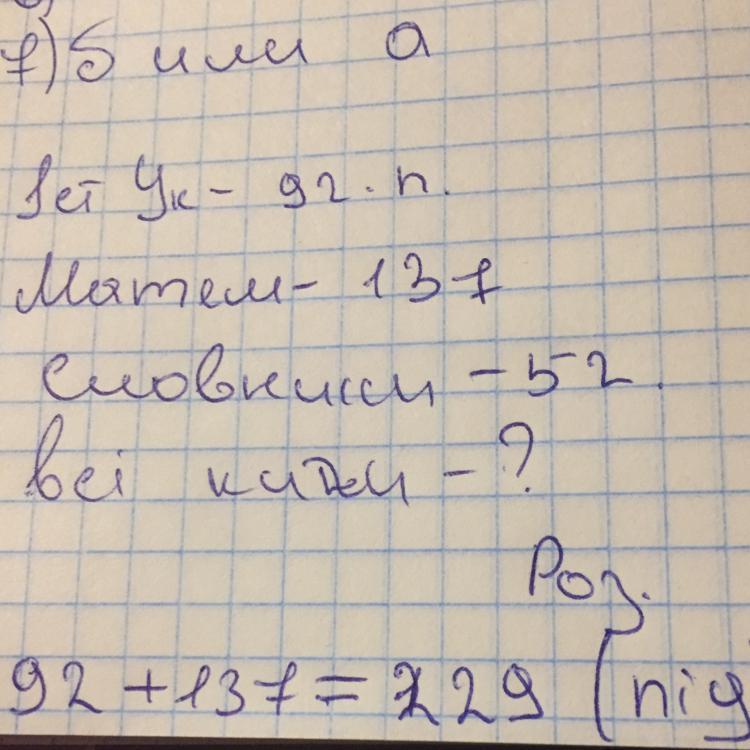 7) б или а
Ук - 92. п.
Матем - 137
Словники - 52.
всі книжки - ?
Роз.
92 + 137 = 229 (під